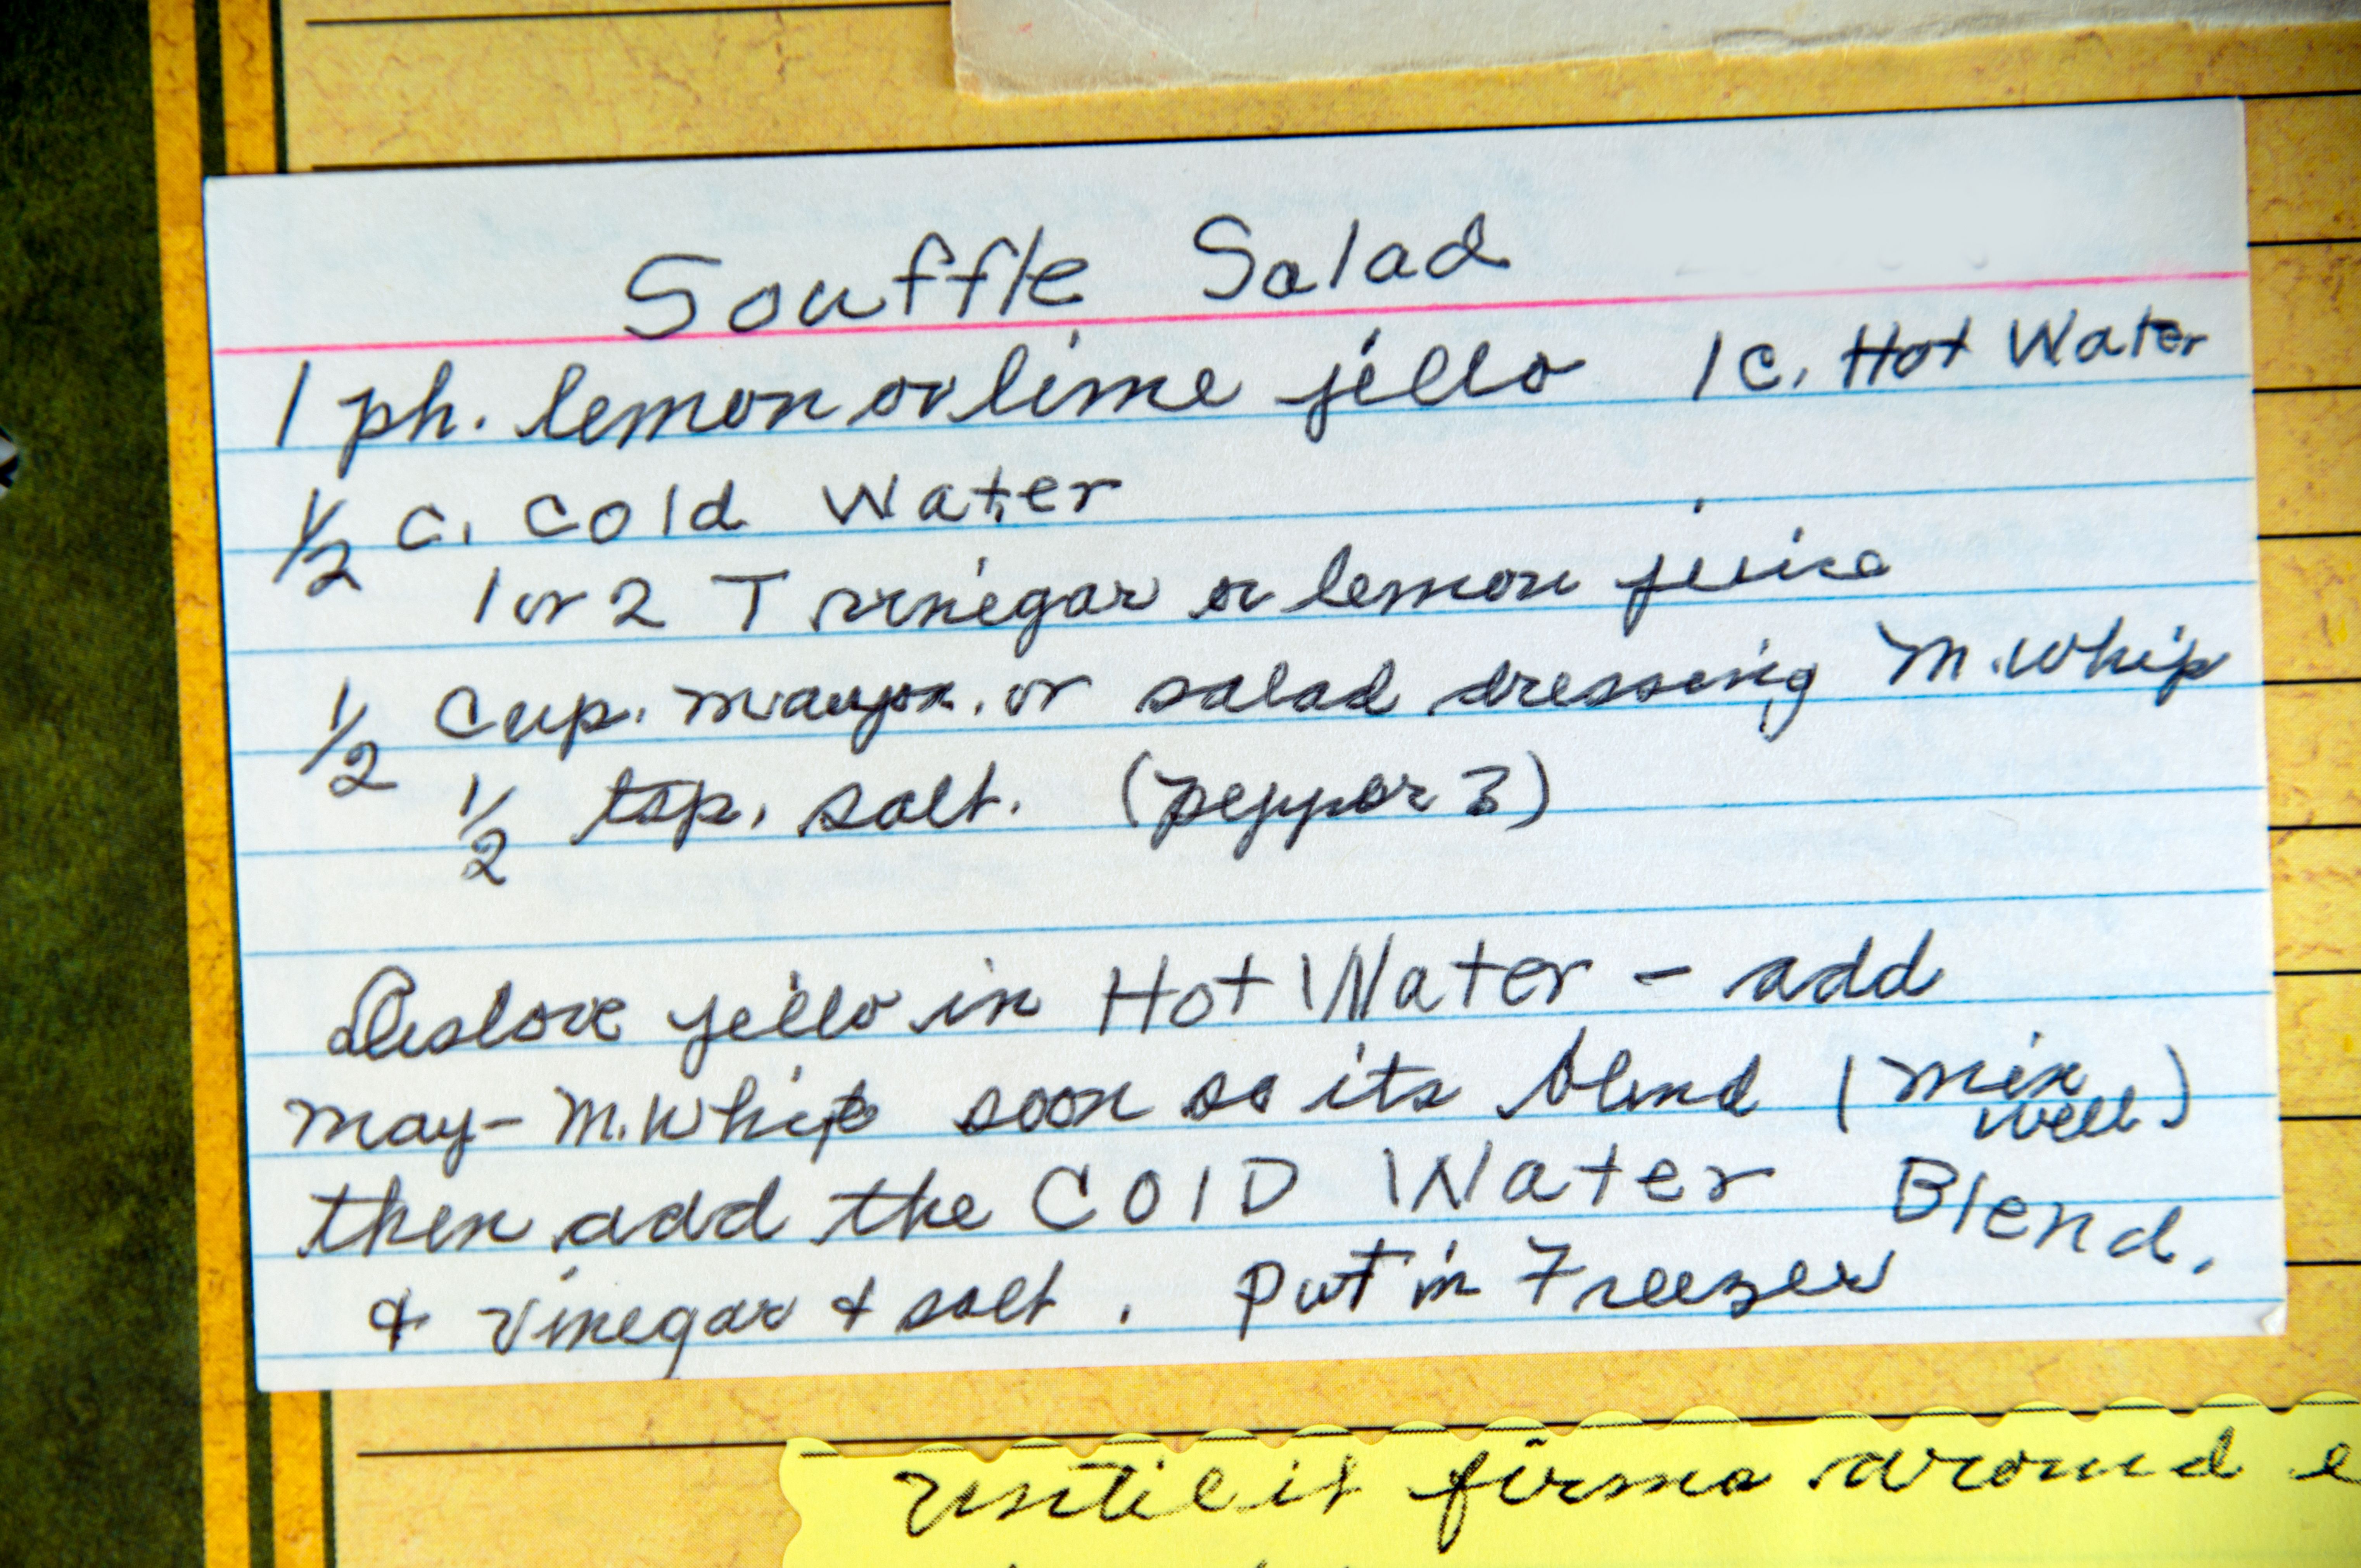 Souffle Salad
1 ph. lemon or lime jello 1 c. Hot Water
1/2 c. cold water
1 or 2 T vinegar or lemon juice
1/2 cup. mayon. or salad dressing M. Whip
1/2 tsp. salt. (pepper ?)
Deslove jello in Hot Water - add
may - M. Whip soon so its blend (mix well)
then add the COlD Water Blend.
& vinegar & salt. Put in Freezer
until it firms around